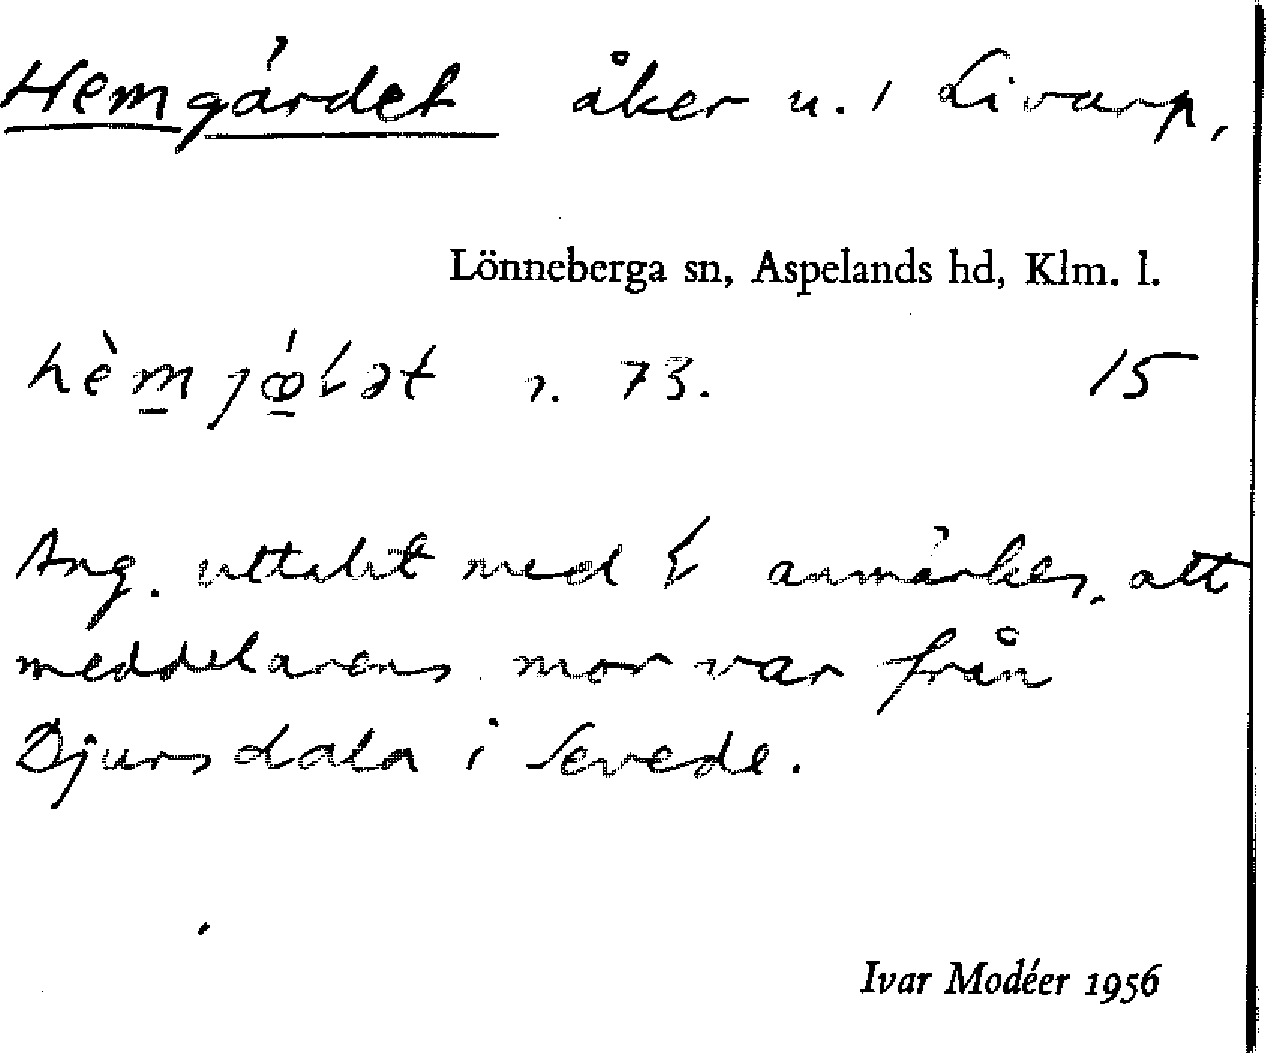 Hemgärdet åker u. 1 Livarp,
Lönneberga sn, Aspelands hd, Klm. l.
hèmjœ́ɽət r. 73. 15
Ang. uttalet med ɽ anmärkes, att
meddelarens mor var från
Djursdala i Sevede.
Ivar Modéer 1956